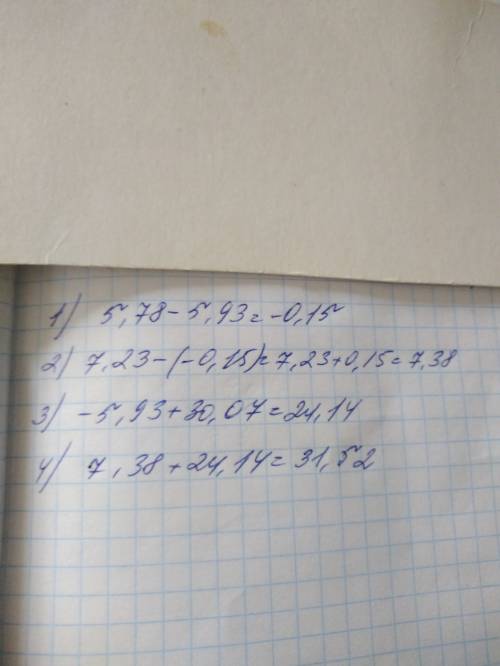 1) 5,78 - 5,93 = -0,15
2) 7,23 - (-0,15) = 7,23 + 0,15 = 7,38
3) -5,93 + 30,07 = 24,14
4) 7,38 + 24,14 = 31,52